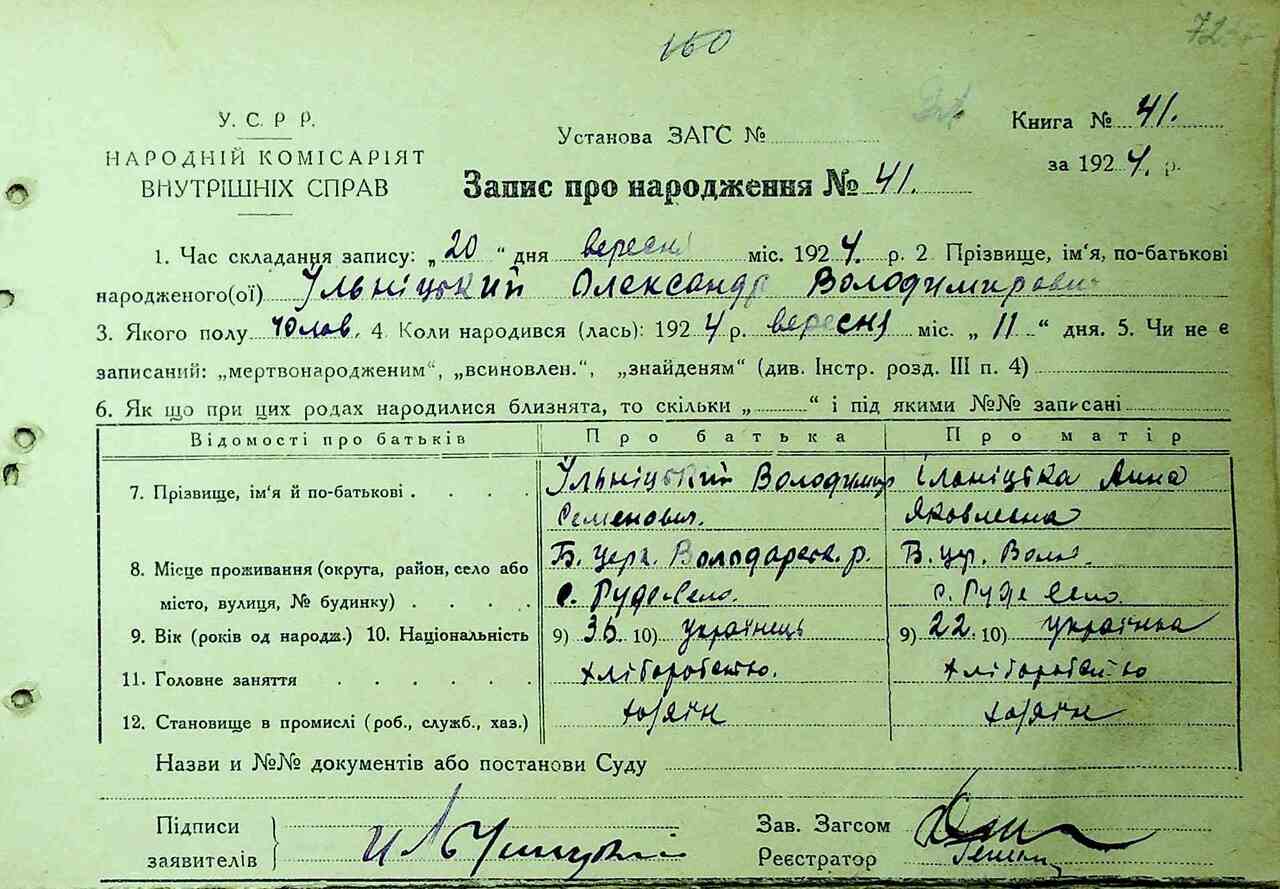 160
72
У. С. Р Р.
НАРОДНІЙ КОМІСАРІЯТ
ВНУТРІШНІХ СПРАВ
Установа ЗАГС №
Книга № 41.
за 1924. р.
Запис про народження № 41.
1. Час складання запису: „20“ дня вересня міс. 1924. р. 2 Прізвище, ім'я, по-батькові
народженого(ої) Ульніцький Олександр Володимирович
3. Якого полу чолов. 4. Коли народився (лась): 1924 р. вересня міс. „11“ дня. 5. Чи не є
записаний: „мертвонародженим“, „всиновлен.“, „знайденям“ (див. Інстр. розд. III п. 4)
6. Як що при цих родах народилися близнята, то скільки „ “ і під якими №№ записані
Відомості про батьків Про батька Про матір
7. Прізвище, ім'я й по-батькові Ульніцький Володимир Ільніцька Анна
Семенович. Яковлевна
8. Місце проживання (округа, район, село або Б. Церк. Володарськ. р. Б. Цер. Вол.
місто, вулиця, № будинку) с. Руде-Село. с. Руде Село.
9. Вік (років од народж.) 10. Національність 9) 36. 10) українець 9) 22. 10) українка
11. Головне заняття хліборобство. хліборобство
12. Становище в промислі (роб., служб., хаз.) хазяїн хазяїн
Назви и №№ документів або постанови Суду
Підписи
заявителів
Зав. Загсом
Реєстратор